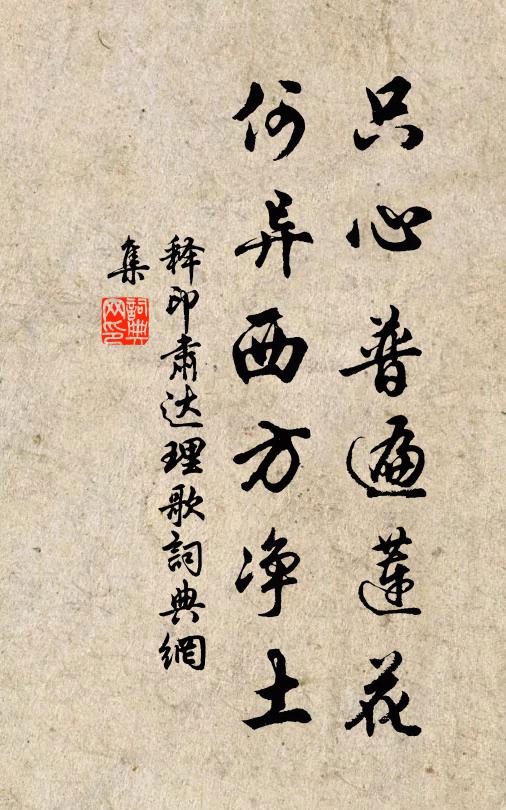 只心普遍莲花
何异西方净土
释印肃达理歌詞典網
集
詞典网印